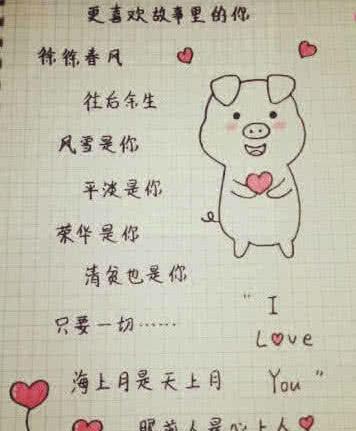 更喜欢故事里的你
徐徐春风
往后余生
风雪是你
平淡是你
荣华是你
清贫也是你
只要一切……
海上月是天上月
眼前人是心上人
"I
Love
You"